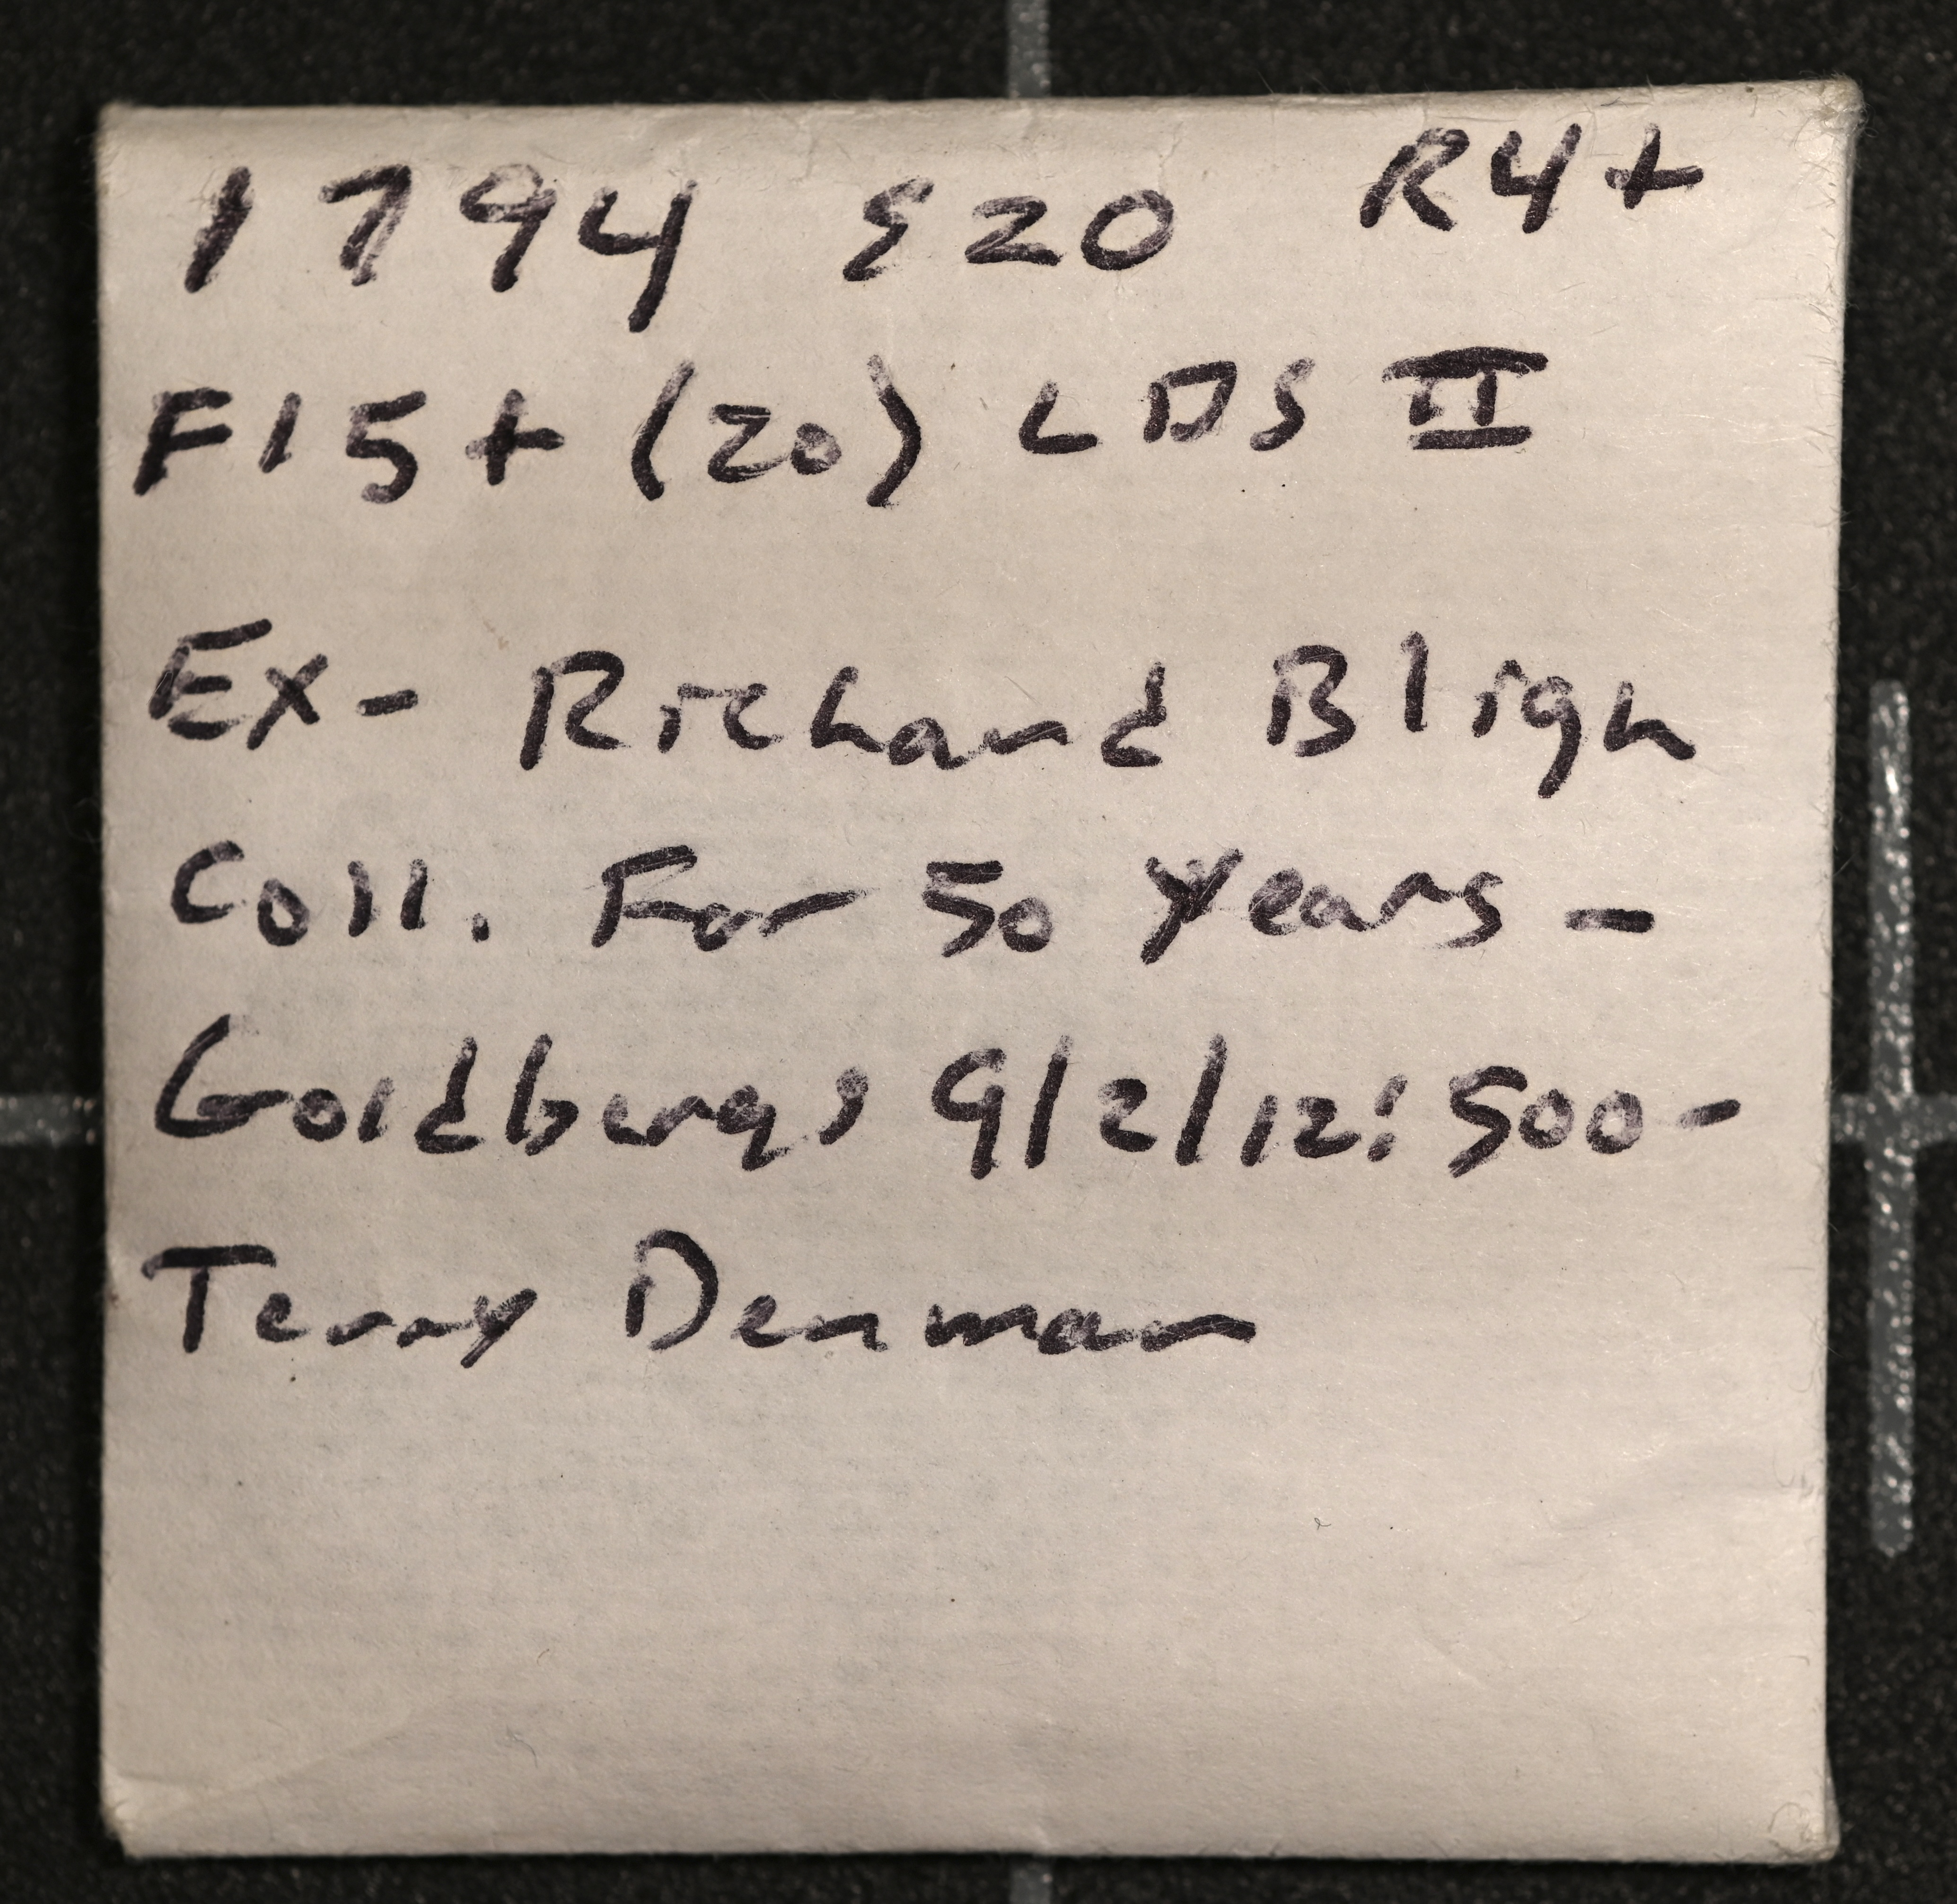 1794 S20 R4+
F15+ (20) LDS II
Ex- Richard Bligh
Coll. For 50 Years -
Goldbergs 9/2/12: 500-
Terry Denman